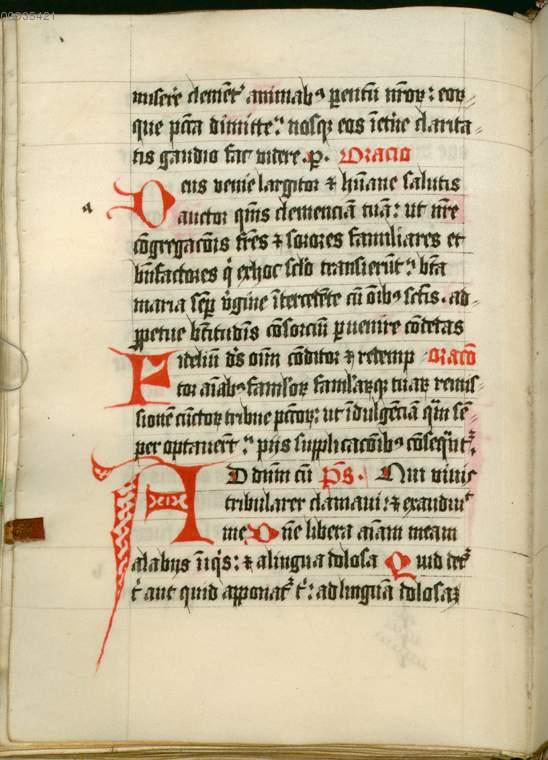 00035421
misere͛ clemēt͛ animabꝰ parentū nr͞oꝝ : eoꝝ
que pcc̄a dimitte ⁊ nosqꝫ eos ī et̄ne clarita
tis gaudio fac videre . p . Oracio
Deus venie largitor ⁊ hūane salutis
a
auctor qm̄s clemenciā tuā : ut nr̄e
cōgregacōis fr̄es ⁊ sorores familiares et
bn̄factores q̇ ex hoc sclo transierūt ⁊ bt̄a
maria semp̄ v̇gine ītercedēte cū oībꝰ sctīs . ad
ꝑpetue bt̄itudīs cōsorciū ꝑuenire cōcedas
Fideliū ds̄ oīm cōditor ⁊ redemp oracō
tor aīabꝰ famlo̅ꝝ famlaꝝqꝫ tuaꝝ remis
sionē cūctoꝝ tribue pcc̄oꝝ : ut īdulgēciā qm̄ sē
per optauerūt ⁊ pijs supplicacōibꝰ cōseqn̄t͛ .
AD dn̄m cū p̄s . Nui viuit
tribularer clamaui : ⁊ exaudiuit
XIX
me Dn̄e libera aīam meam
a labijs īiq̇s : ⁊ a lingua dolosa Quid det͛
t̄ aut quid apponat͛ t̄ : ad linguā dolosaꝫ